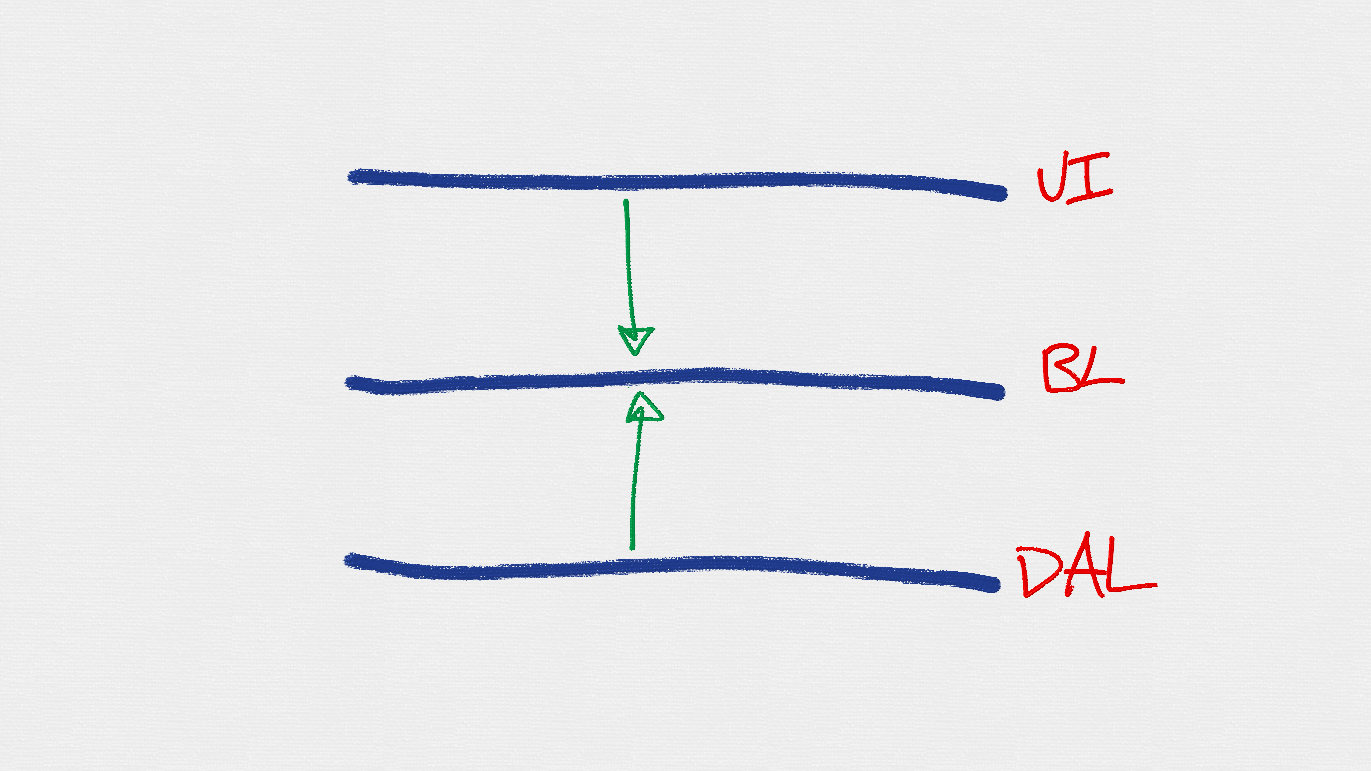 UI
BL
DAL